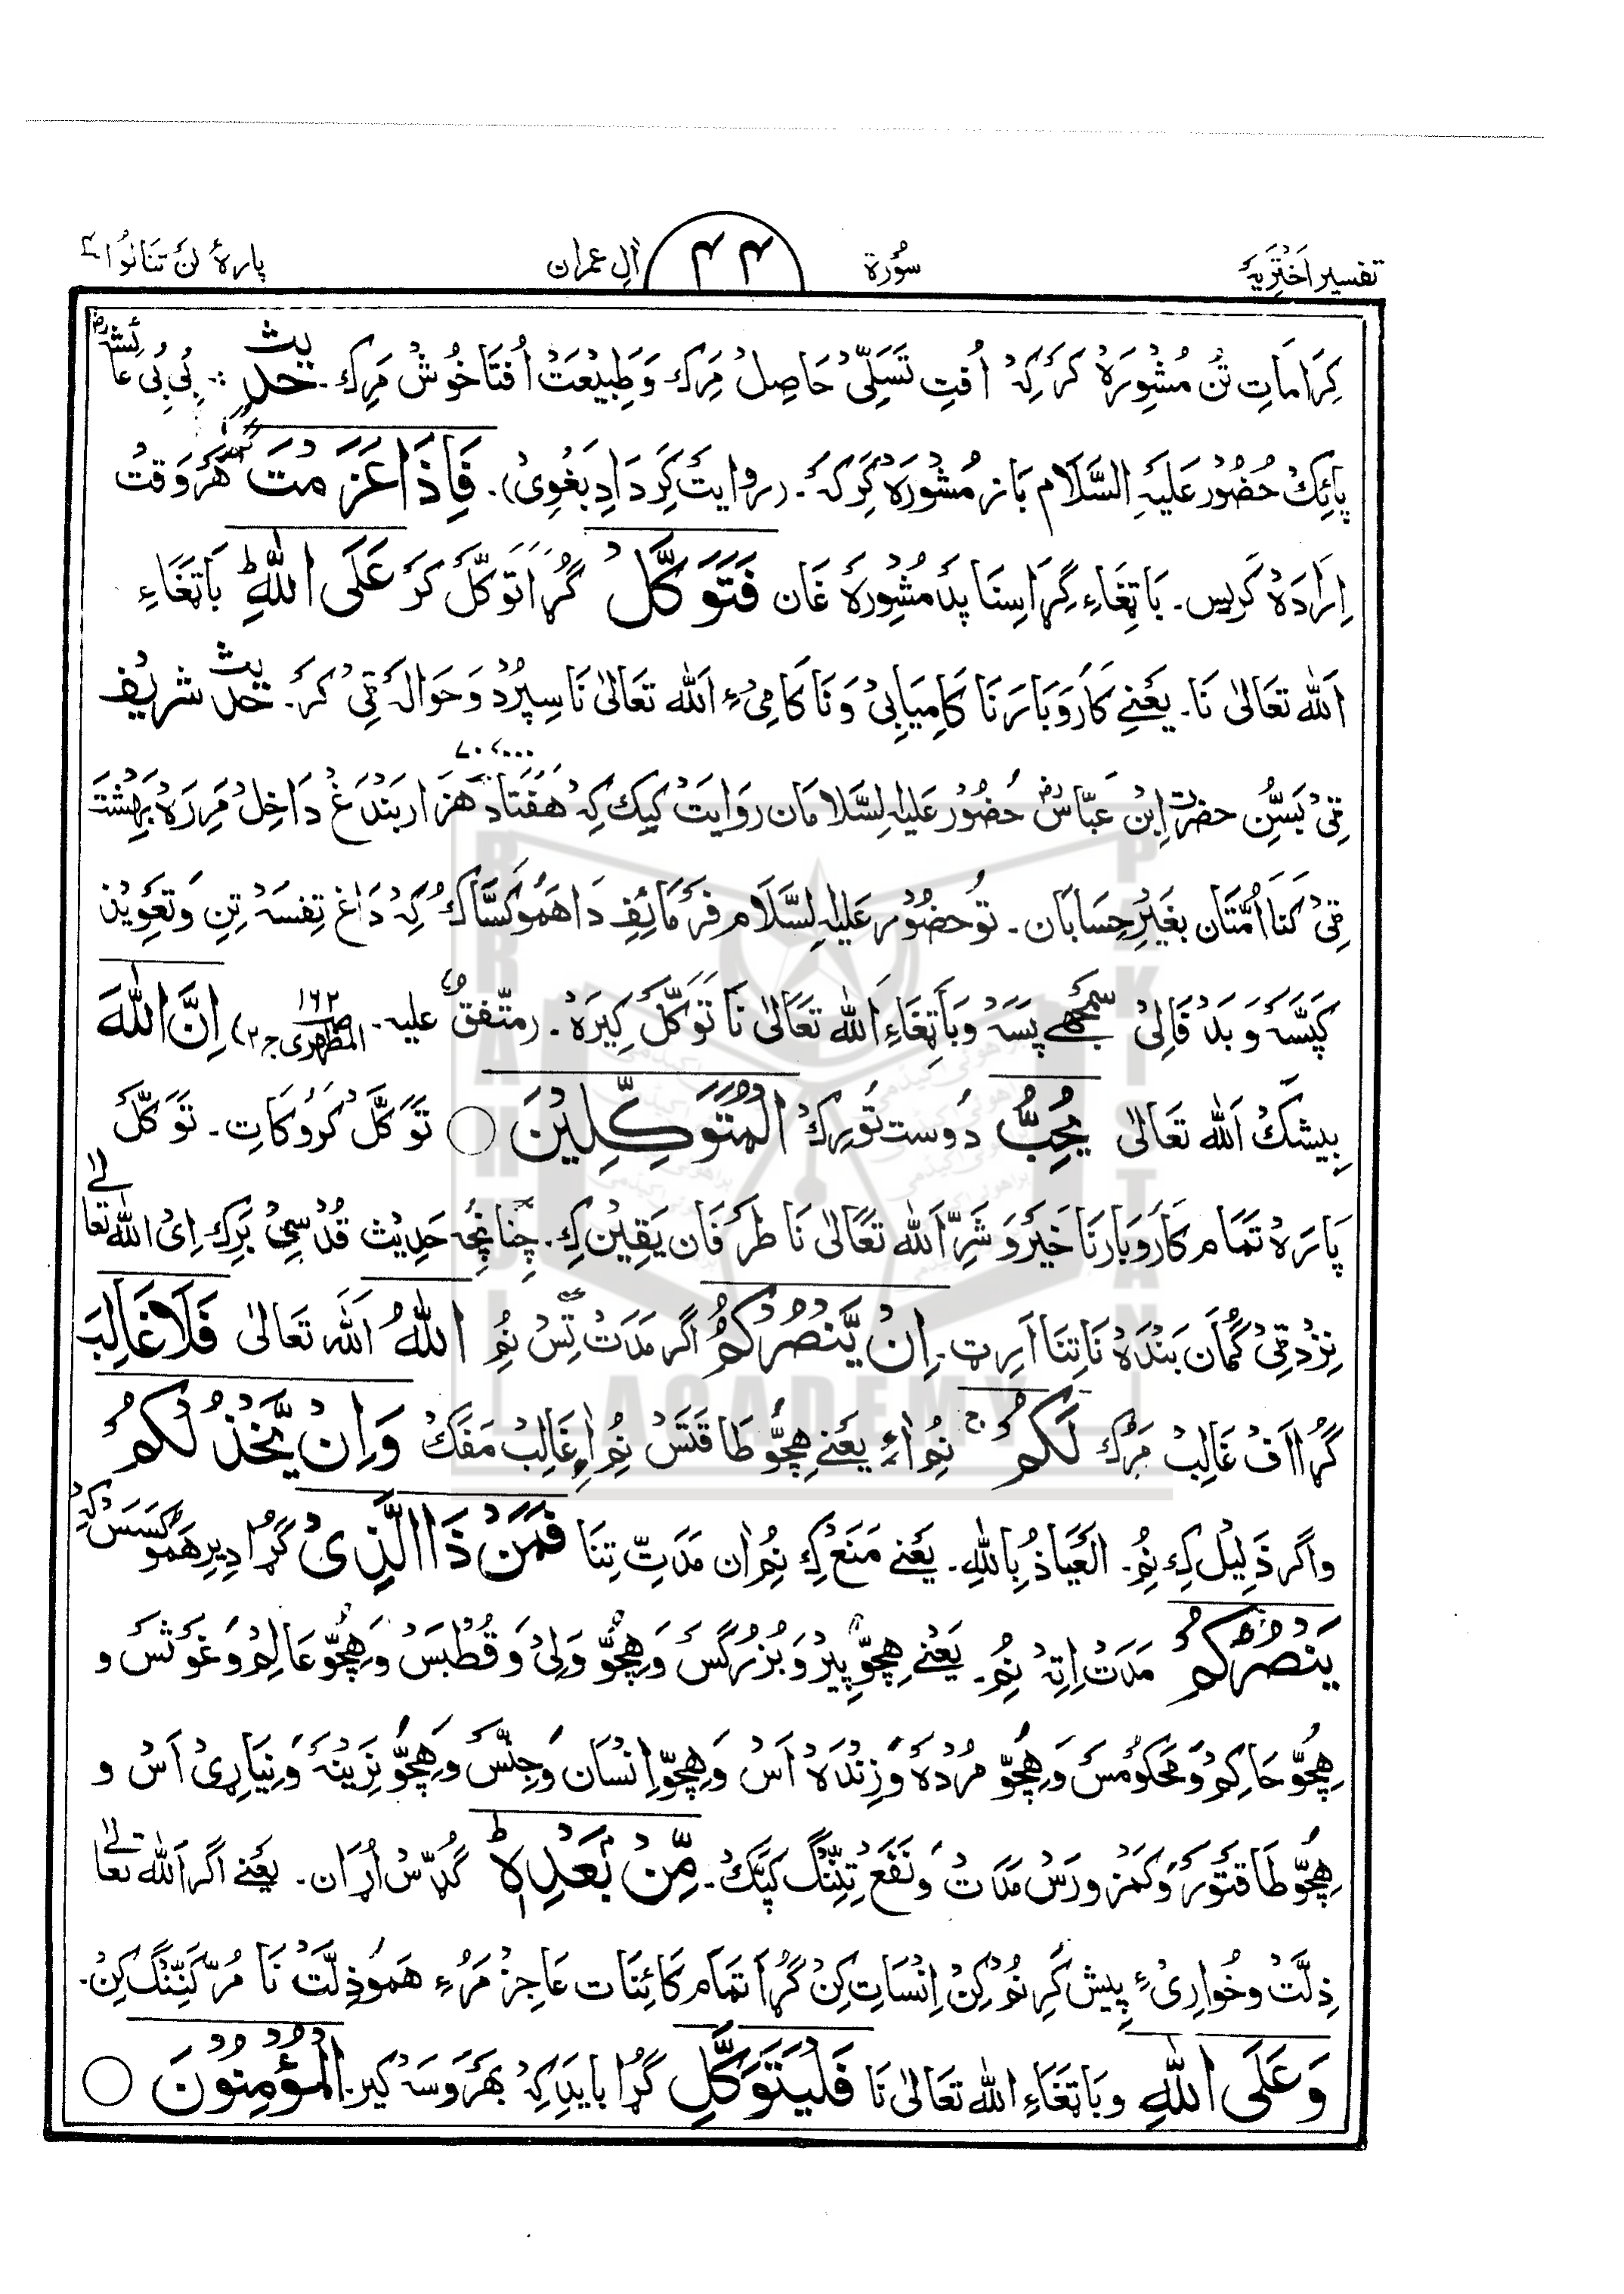 تفسیر اَختَرِیَہ سُورۃ ۴۴ اٰلِ عمران پارہٴ لَن تَنَالُوا ۴
کِرَامَاتِ تُن مُشْوِرَہ کَرْکِہ اُفتِ تَسَلِّیْ حَاصِلْ مَرِکْ وَطَبِیْعَتْ اُفْتَا خُوشْ مَرِک۔ حدیث :۔ بِی بِی عَائِشَہ رض
پَائِکْ حُضُوْر عَلَیہِ السَّلَام بَاز مَشْوَرَہ کَرَکَہ۔ (روایت کَرِ دَادِ بَغْوِیْ)۔ فَاِذَا عَزَمْتَ گُڑا ہَرْوَقتْ
اِرَادَہ کَرِیس۔ بَاتِغَاءِ گِڑَاسِنَا پَدْ مَشْوِرَہ غَان فَتَوَکَّلْ گُڑَا تَوَکَّلْ کَرْ عَلَی اللّٰہِ ط بَاتِغَاءِ
اَللّٰہ تَعَالٰی نَا۔ یَعْنِے کَاروَبَارَنَا کَامِیَابِیْ وَنَا کَامِیْءِ اَللّٰہ تَعَالٰی نَا سِپُرْد وَحَوَالَہ ٹِیْ کَرْ۔ حدیث شریف
۷۰۰۰۰
ٹِیْ بَسُّنْ حضرت اِبْنِ عَبَّاس رض حُضُوْر عَلَیْہِ السَّلَامَان رِوَایَتْ کَیِکْ کِہ ہَفْتَاد ہَزَار بَنْدَغْ دَاخِلْ مَرِرَہ بِہِشْتَ
ٹِیْ کَنَا اُمَّتَان بِغَیْرِ حِسَابَان۔ تَو حُضُوْر عَلَیْہِ السَّلَام فَرْمَائِفِ دَاہَمُو کَسَّاکْ کِہ دَاغ تِفسَہ تِنِ وَ تَعْوِیْذ
کَپَسَّہ وَ بَدْ فَالِیْ سَمْجھے پَسَہ وَ بَاتِغَاءِ اَللّٰہ تَعَالٰی نَا تَوَکَّلْ کِیْرَہ۔ (متّفق علیہ۔ المظھری ج ۲ ص ۱۶۲) اِنَّ اللّٰہَ
بِیشَکْ اَللّٰہ تَعَالٰی یُحِبُّ دُوست تَورِکْ الْمُتَوَکِّلِیْنَ ○ تَوَکَّلْ کَرُوکَاتِ۔ تَوَکَّلْ
پَارَہ تَمَام کَاروَبَارنَا خَیْر وَ شَرِّ اَللّٰہ تَعَالٰی نَا طَرَفَان یَقِیْن کِ۔ چُنَانچِہ حَدِیْث قُدْسِیْ بَرِکْ اِیْ اللّٰہ تعالٰے
نِزْد ٹِیْ گُمَان بَنْدَہ نَا تِنَا اَرِٹ۔ اِنْ یَّنْصُرْکُمُ اَگر مَدَتْ تِسْ نُمِ اللّٰہُ اَللّٰہ تَعَالٰی فَلَا غَالِبَ
گُڑا اَفْ غَالِبْ مَرُکْ لَکُمْ ج نُمِ اءِ یعْنِے ہِچُّ طَاقَتَسْ نُمِ اءِ غَالِبْ مَفَکْ وَاِنْ یَّخْذُلْکُمْ
وَاگر ذَلِیْل کِ نُمِ۔ العَیَاذُ بِاللّٰہِ۔ یعَنِے مَنَع کِ نُمِ اٰن مَدَتِّ تِنَا فَمَنْ ذَا الَّذِیْ گُڑا دِیرِ ہَمُو کَسَسْ کِہ
یَنْصُرُکُمْ مَدَتْ اِتِہ نُمِ۔ یَعْنِے ہِچُّو پِیْر وَ بُزُرگَسْ وَہِچُّو وَلِیْ وَ قُطْبَسْ وَہِچُّو عَالِم وَ غَوْثَسْ و
ہِچُّو حَاکِم وَ مَحْکُومَسْ وَہِچُّو مُرْدَہ وَ زِنْدَہ اَسْ وَہِچُّو اِنْسَان وَ جِنَّسْ وَہِچُّو نَرِیْنَہ وَ نِیَارِیْ اَسْ و
ہِچُّو طَاقَتْوَرْ وَ کَمْزورَسْ مَدَتْ وَ نَفَعْ تِنِنْگ کَپَّکْ۔ مِّنْۢ بَعْدِہٖ ط گُڈّسْ اُرَان۔ یعَنِے اَگر اَللّٰہ تعالٰے
ذِلَّتْ وَخُوارِیْ ءِ پِیش کَرِ نُمْ کِنْ اِنْسَاتِ کِنْ گُڑَا تَمَام کَائِنَات عَاجِز مَرُءِ ہَمُو ذِلَّتْ نَا مُرّ کَنِّنْگ کِنْ۔
وَعَلَی اللّٰہِ وَبَاتِغَاءِ اَللّٰہ تَعَالٰی نَا فَلْیَتَوَکَّلِ گُڑا بَایَدِکِہ بَھَرْوَسَہ کِیر الْمُؤْمِنُوْنَ ○